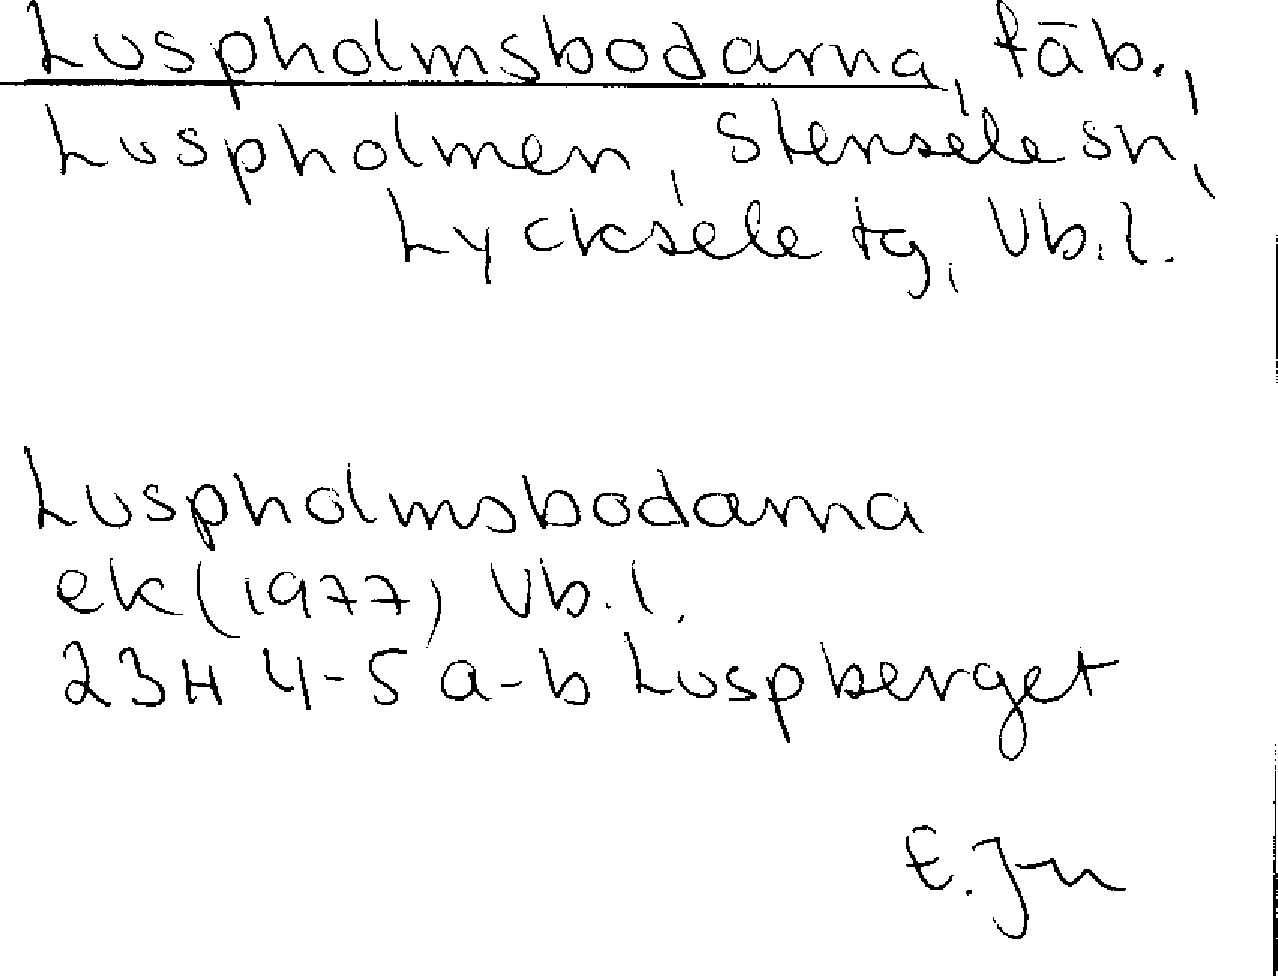 Luspholmsbodarna, fäb.,
Luspholmen, Stensele sn,
Lycksele tg, Vb.l.
Luspholmsbodarna
ek (1977) Vb.l.
23H 4-5 a-b Luspberget
E. J-n